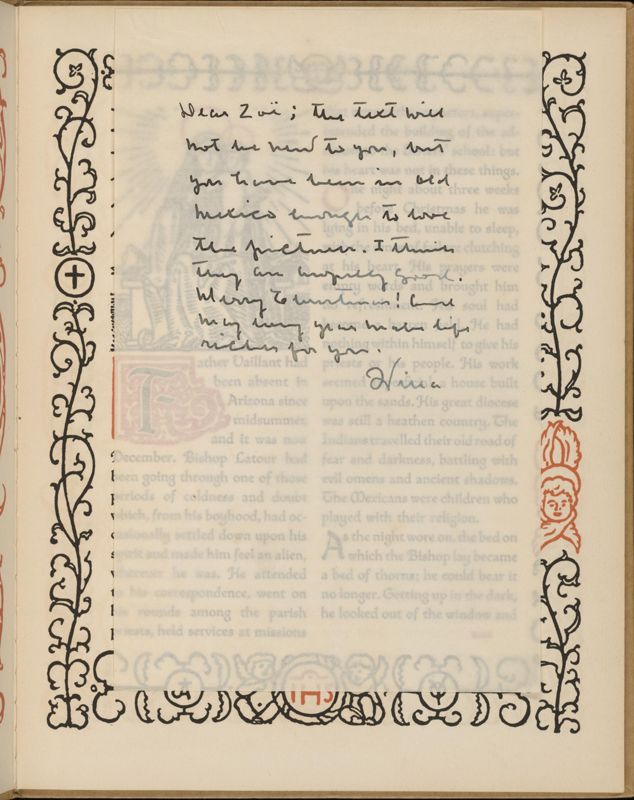 Dear Zoë; the text will
not be new to you, but
you have been in old
Mexico enough to love
the pictures. I think
they are awfully good.
Merry Christmas! And
may every year make life
richer for you.
Father Vaillant had
been absent in
Arizona since
midsummer,
and it was now
December. Bishop Latour had
been going through one of those
periods of coldness and doubt
which, from his boyhood, had oc-
casionally settled down upon his
spirit and made him feel an alien,
wherever he was. He attended
to his correspondence, went on
his rounds among the parish
priests, held services at missions
super-
intended the building of the ad-
school: but
his heart was not in these things.
One night about three weeks
before Christmas he was
lying in his bed, unable to sleep,
clutching
at his heart. His prayers were
empty words and brought him
no refreshment. His soul had
He had
nothing within himself to give his
priests or his people. His work
seemed house built
upon the sands. His great diocese
was still a heathen country. The
Indians travelled their old road of
fear and darkness, battling with
evil omens and ancient shadows.
The Mexicans were children who
played with their religion.
As the night wore on, the bed on
which the Bishop lay became
a bed of thorns; he could bear it
no longer. Getting up in the dark,
he looked out of the window and
IHS